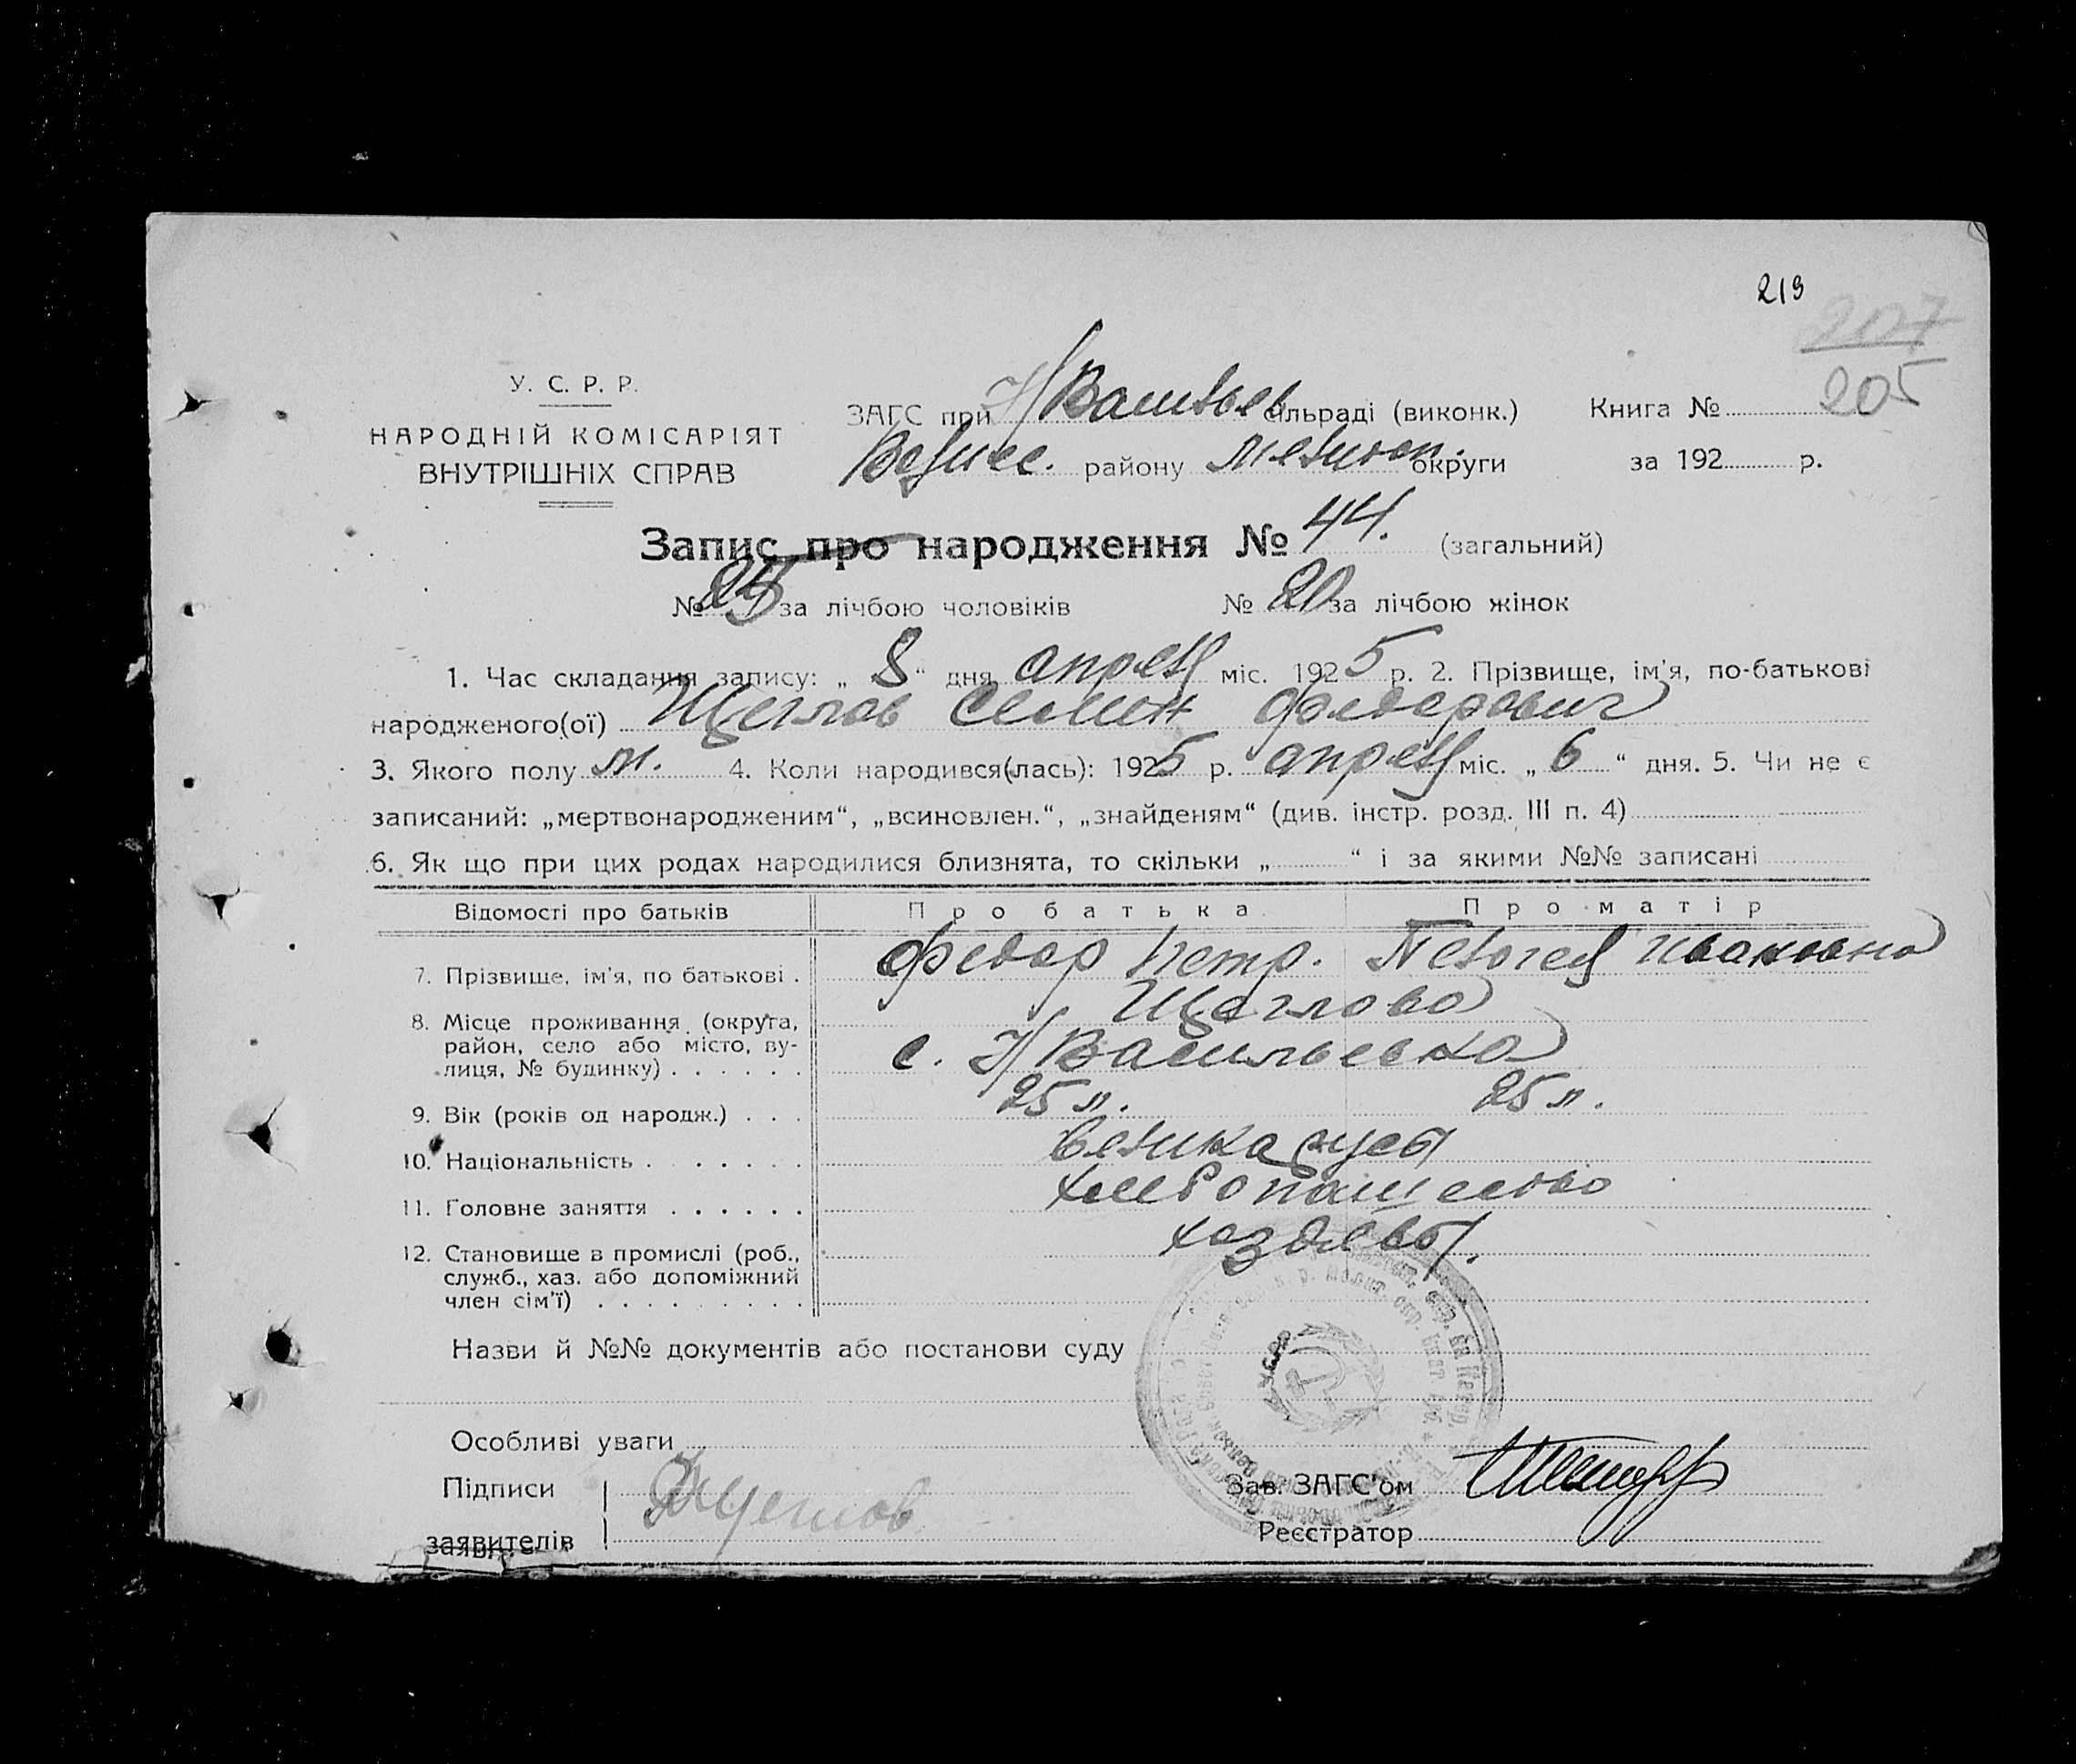 219
207
205
У. С. Р. Р.
НАРОДНІЙ КОМІСАРІЯТ
ВНУТРІШНІХ СПРАВ
ЗАГС при Н/Васильев сільраді (виконк.) Книга №
району Мелитоп. округи за 192 р.
Запис про народження № 44. (загальний)
№ за лічбою чоловіків № 20 за лічбою жінок
1. Час складання запису: „ 8 “ дня апреля міс. 1925 р. 2. Прізвище, ім'я, по-батькові
народженого(ої) Щеглов Семен Федерович
3. Якого полу м. 4. Коли народився(лась): 1925 р. апреля міс. „ 6 “ дня. 5. Чи не є
записаний: „мертвонародженим“, „всиновлен.“, „знайденям“ (див. інстр. розд. III п. 4)
6. Як що при цих родах народилися близнята, то скільки „ “ і за якими №№ записані
Відомості про батьків Про батька Про матір
7. Прізвище, ім'я, по батькові . Федор Петр. Пелогея Ивановна
Щеглова
8. Місце проживання (округа,
район, село або місто, ву-
лиця, № будинку) . . . . . . с. Н/Васильевка
9. Вік (років од народж.) . . . 25 л. 25 л.
10. Національність . . . . . . . великарусы
11. Головне заняття . . . . . . хлебопашество
12. Становище в промислі (роб.,
служб., хаз. або допоміжний
член сім'ї) . . . . . . . . . хозяевы.
Назви й №№ документів або постанови суду
У.С.Р.Р.
Особливі уваги
Підписи
заявителів
Зав. ЗАГС'ом
Реєстратор